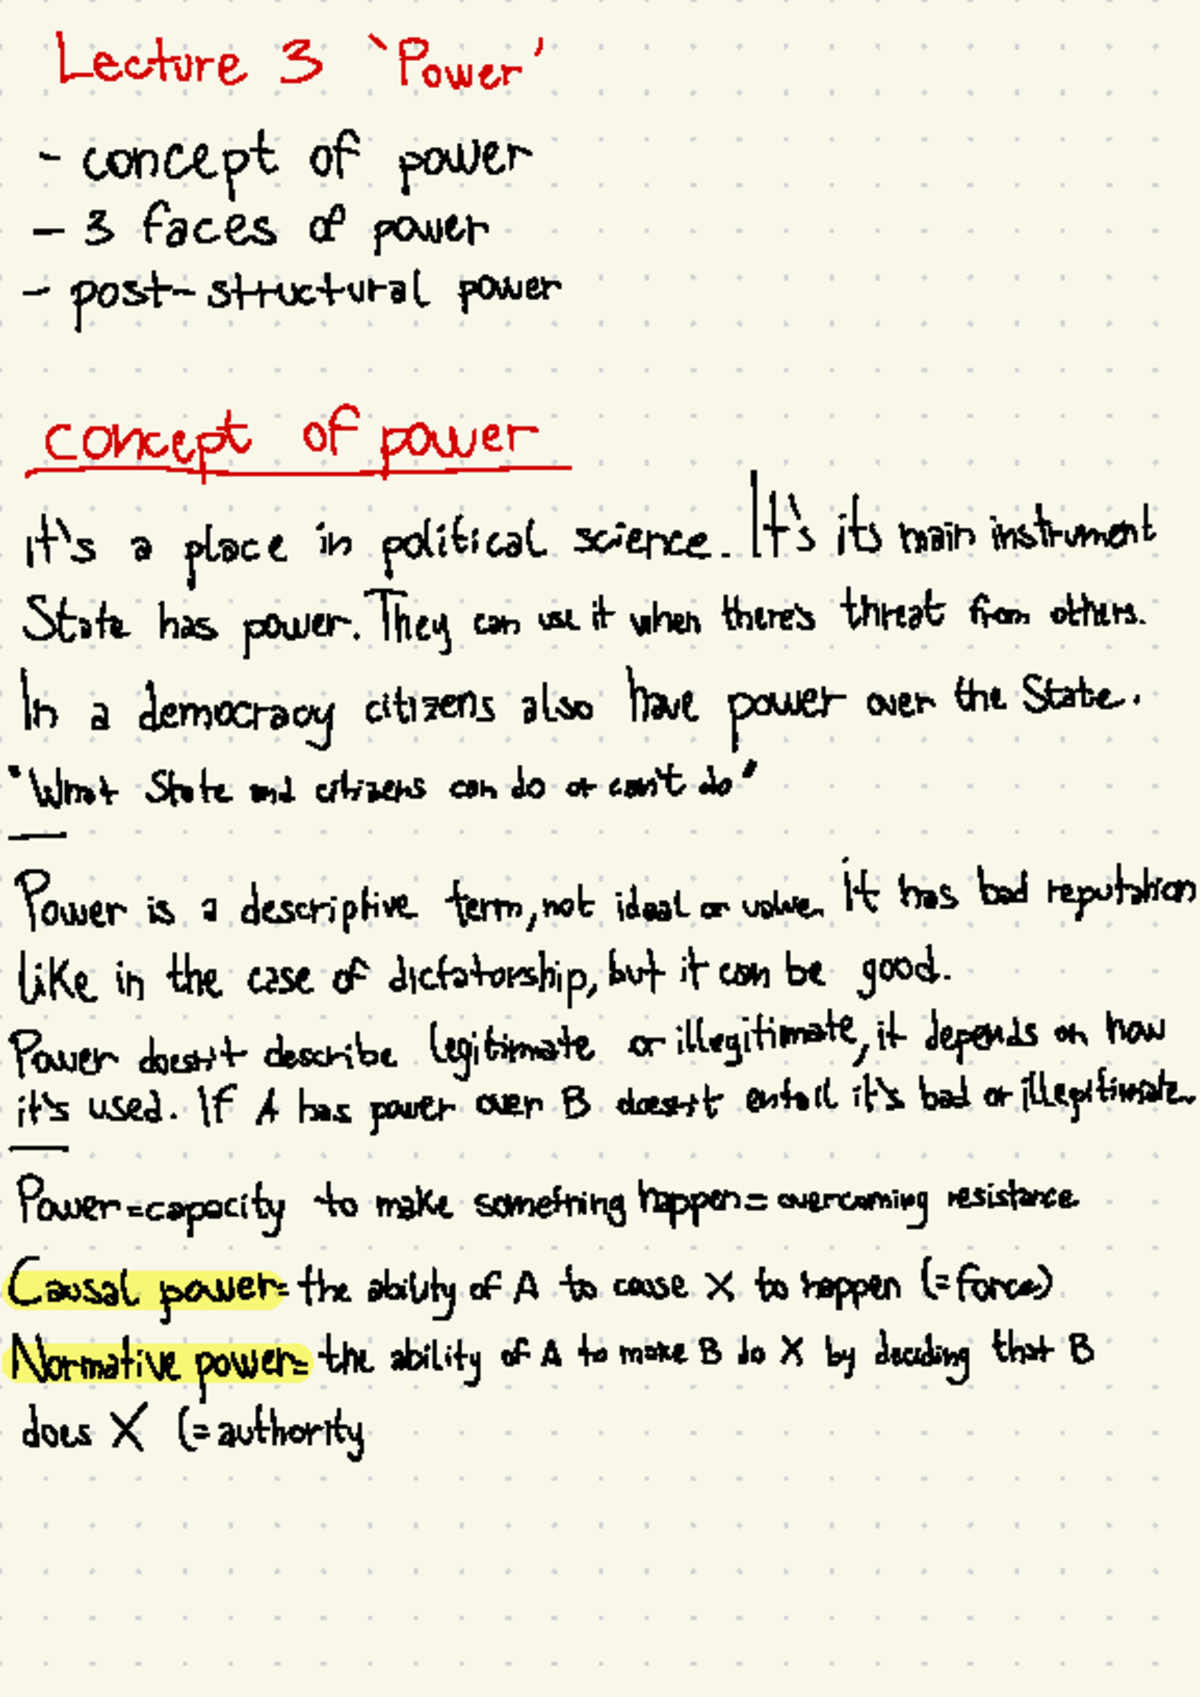 Lecture 3 `Power'
- concept of power
- 3 faces of power
- post-structural power
concept of power
it's a place in political science. It's its main instrument
State has power. They can use it when there's threat from others.
In a democracy citizens also have power over the State.
"What State and citizens can do or can't do"
Power is a descriptive term, not ideal or value. It has bad reputation
like in the case of dictatorship, but it can be good.
Power doesn't describe legitimate or illegitimate, it depends on how
it's used. If A has power over B doesn't entail it's bad or illegitimate.
Power=capacity to make something happen= overcoming resistance
Causal power= the ability of A to cause X to happen (=force)
Normative power= the ability of A to make B do X by deciding that B
does X (=authority